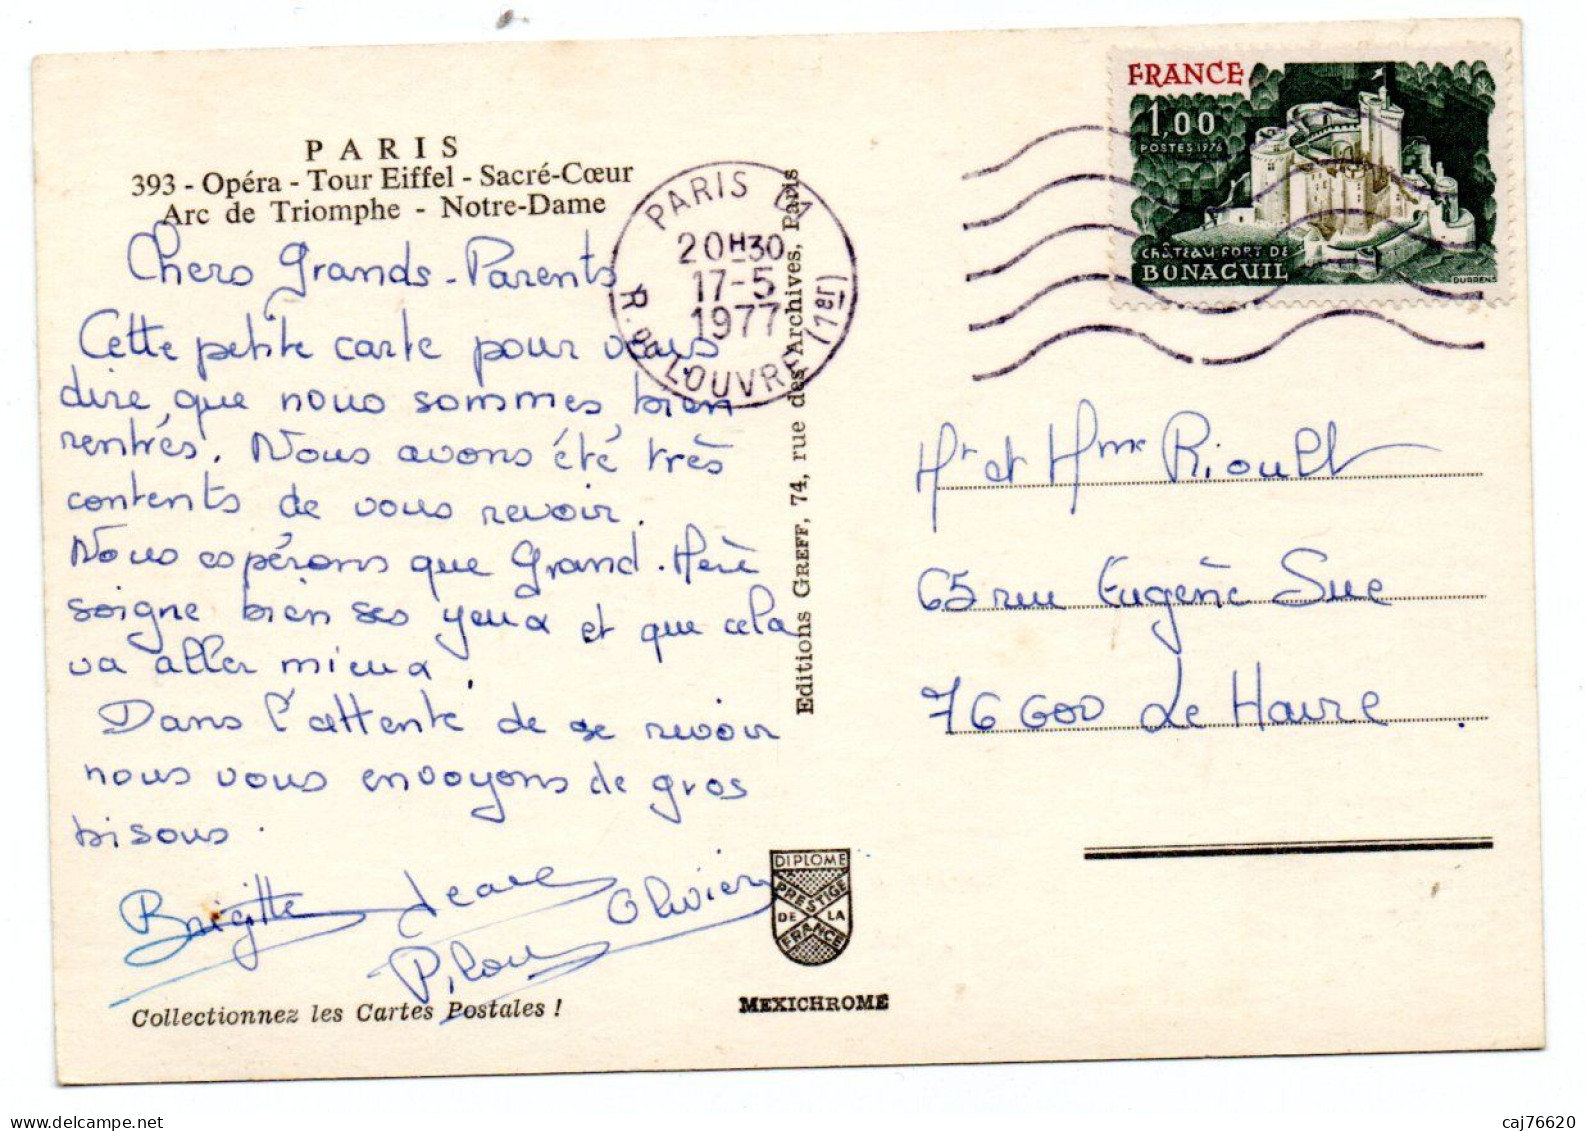 PARIS
393 - Opéra - Tour Eiffel - Sacré-Cœur
Arc de Triomphe - Notre-Dame
Chers Grands-Parents
Cette petite carte pour vous
dire, que nous sommes bien
rentrés. Nous avons été très
contents de vous revoir.
Nous espérons que Grand-Mère
soigne bien ses yeux et que cela
va aller mieux.
Dans l'attente de se revoir
nous vous envoyons de gros
bisous.
Brigitte
Olivier
Collectionnez les Cartes Postales !
PARIS
20H30
17-5
1977
R. DU LOUVRE (1er)
Editions GREFF, 74, rue des Archives, Paris
DIPLOME
PRESTIGE
DE LA
FRANCE
MEXICHROME
FRANCE
1,00
POSTES 1976
CHÂTEAU FORT DE
BONAGUIL
DURRENS
Mr et Mme Rioult
65 rue Eugène Sue
76600 Le Havre.
caj76620